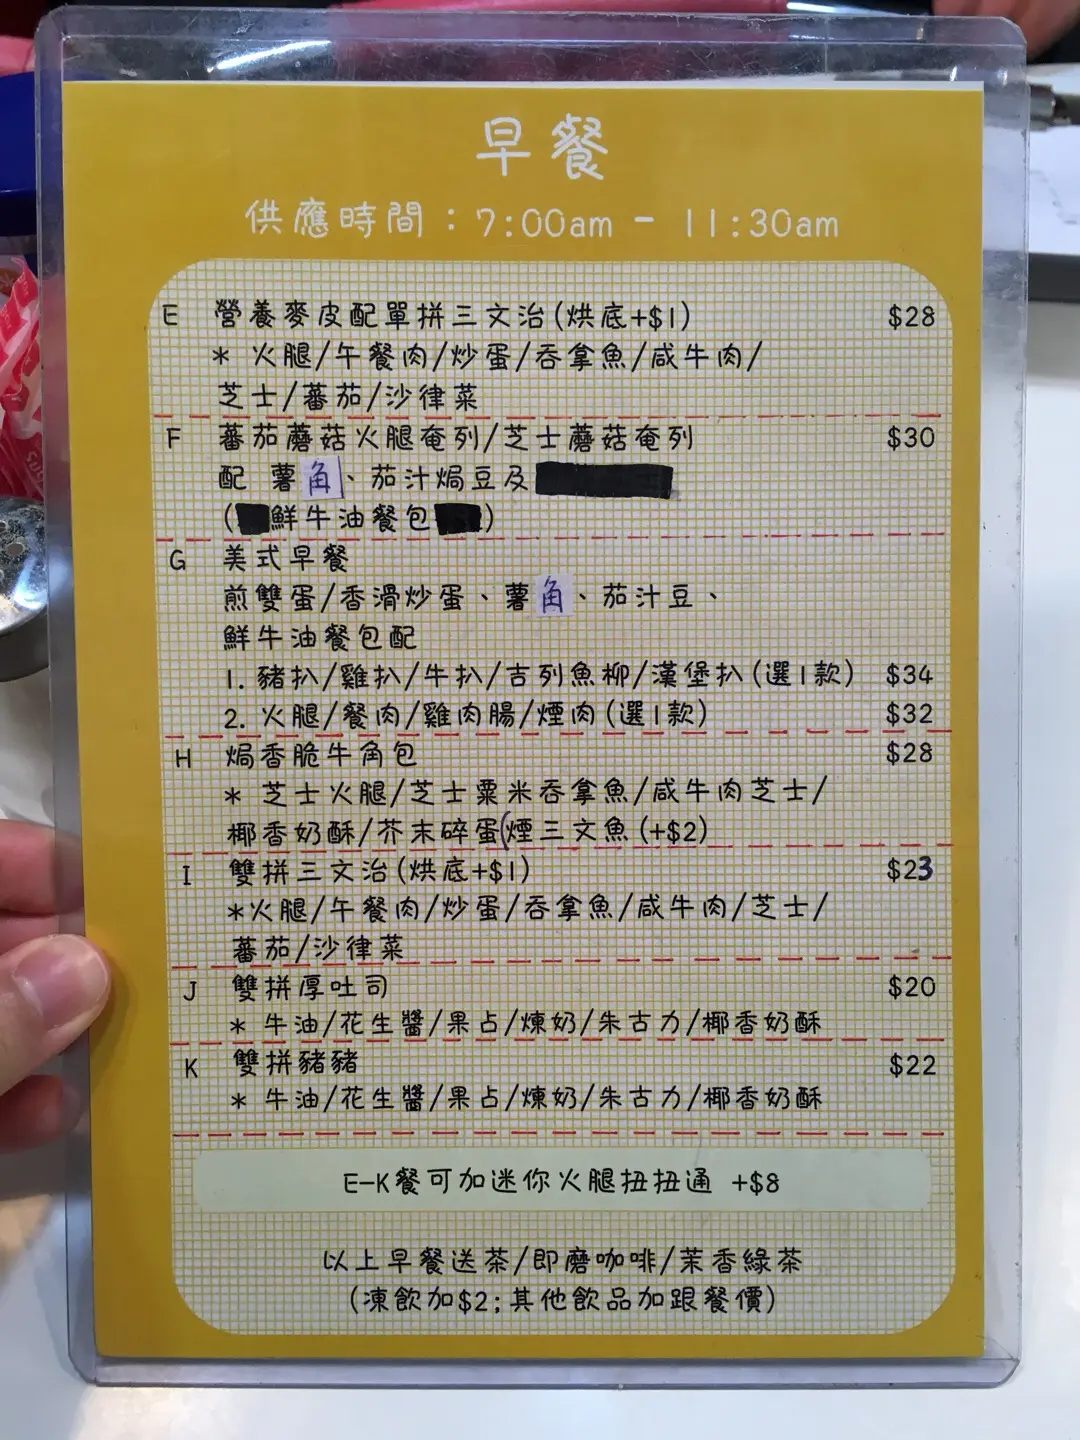 早餐
供應時間：7:00am - 11:30am
E 營養麥皮配單拼三文治(烘底+$1) $28
* 火腿/午餐肉/炒蛋/吞拿魚/咸牛肉/
芝士/蕃茄/沙律菜
F 蕃茄蘑菇火腿奄列/芝士蘑菇奄列 $30
配 薯角、茄汁焗豆及
(鮮牛油餐包)
G 美式早餐
煎雙蛋/香滑炒蛋、薯角、茄汁豆、
鮮牛油餐包配
1. 豬扒/雞扒/牛扒/吉列魚柳/漢堡扒(選1款) $34
2. 火腿/餐肉/雞肉腸/煙肉(選1款) $32
H 焗香脆牛角包 $28
* 芝士火腿/芝士粟米吞拿魚/咸牛肉芝士/
椰香奶酥/芥末碎蛋(煙三文魚(+$2)
I 雙拼三文治(烘底+$1) $23
*火腿/午餐肉/炒蛋/吞拿魚/咸牛肉/芝士/
蕃茄/沙律菜
J 雙拼厚吐司 $20
* 牛油/花生醬/果占/煉奶/朱古力/椰香奶酥
K 雙拼豬豬 $22
* 牛油/花生醬/果占/煉奶/朱古力/椰香奶酥
E-K餐可加迷你火腿扭扭通 +$8
以上早餐送茶/即磨咖啡/茉香綠茶
(凍飲加$2;其他飲品加跟餐價)